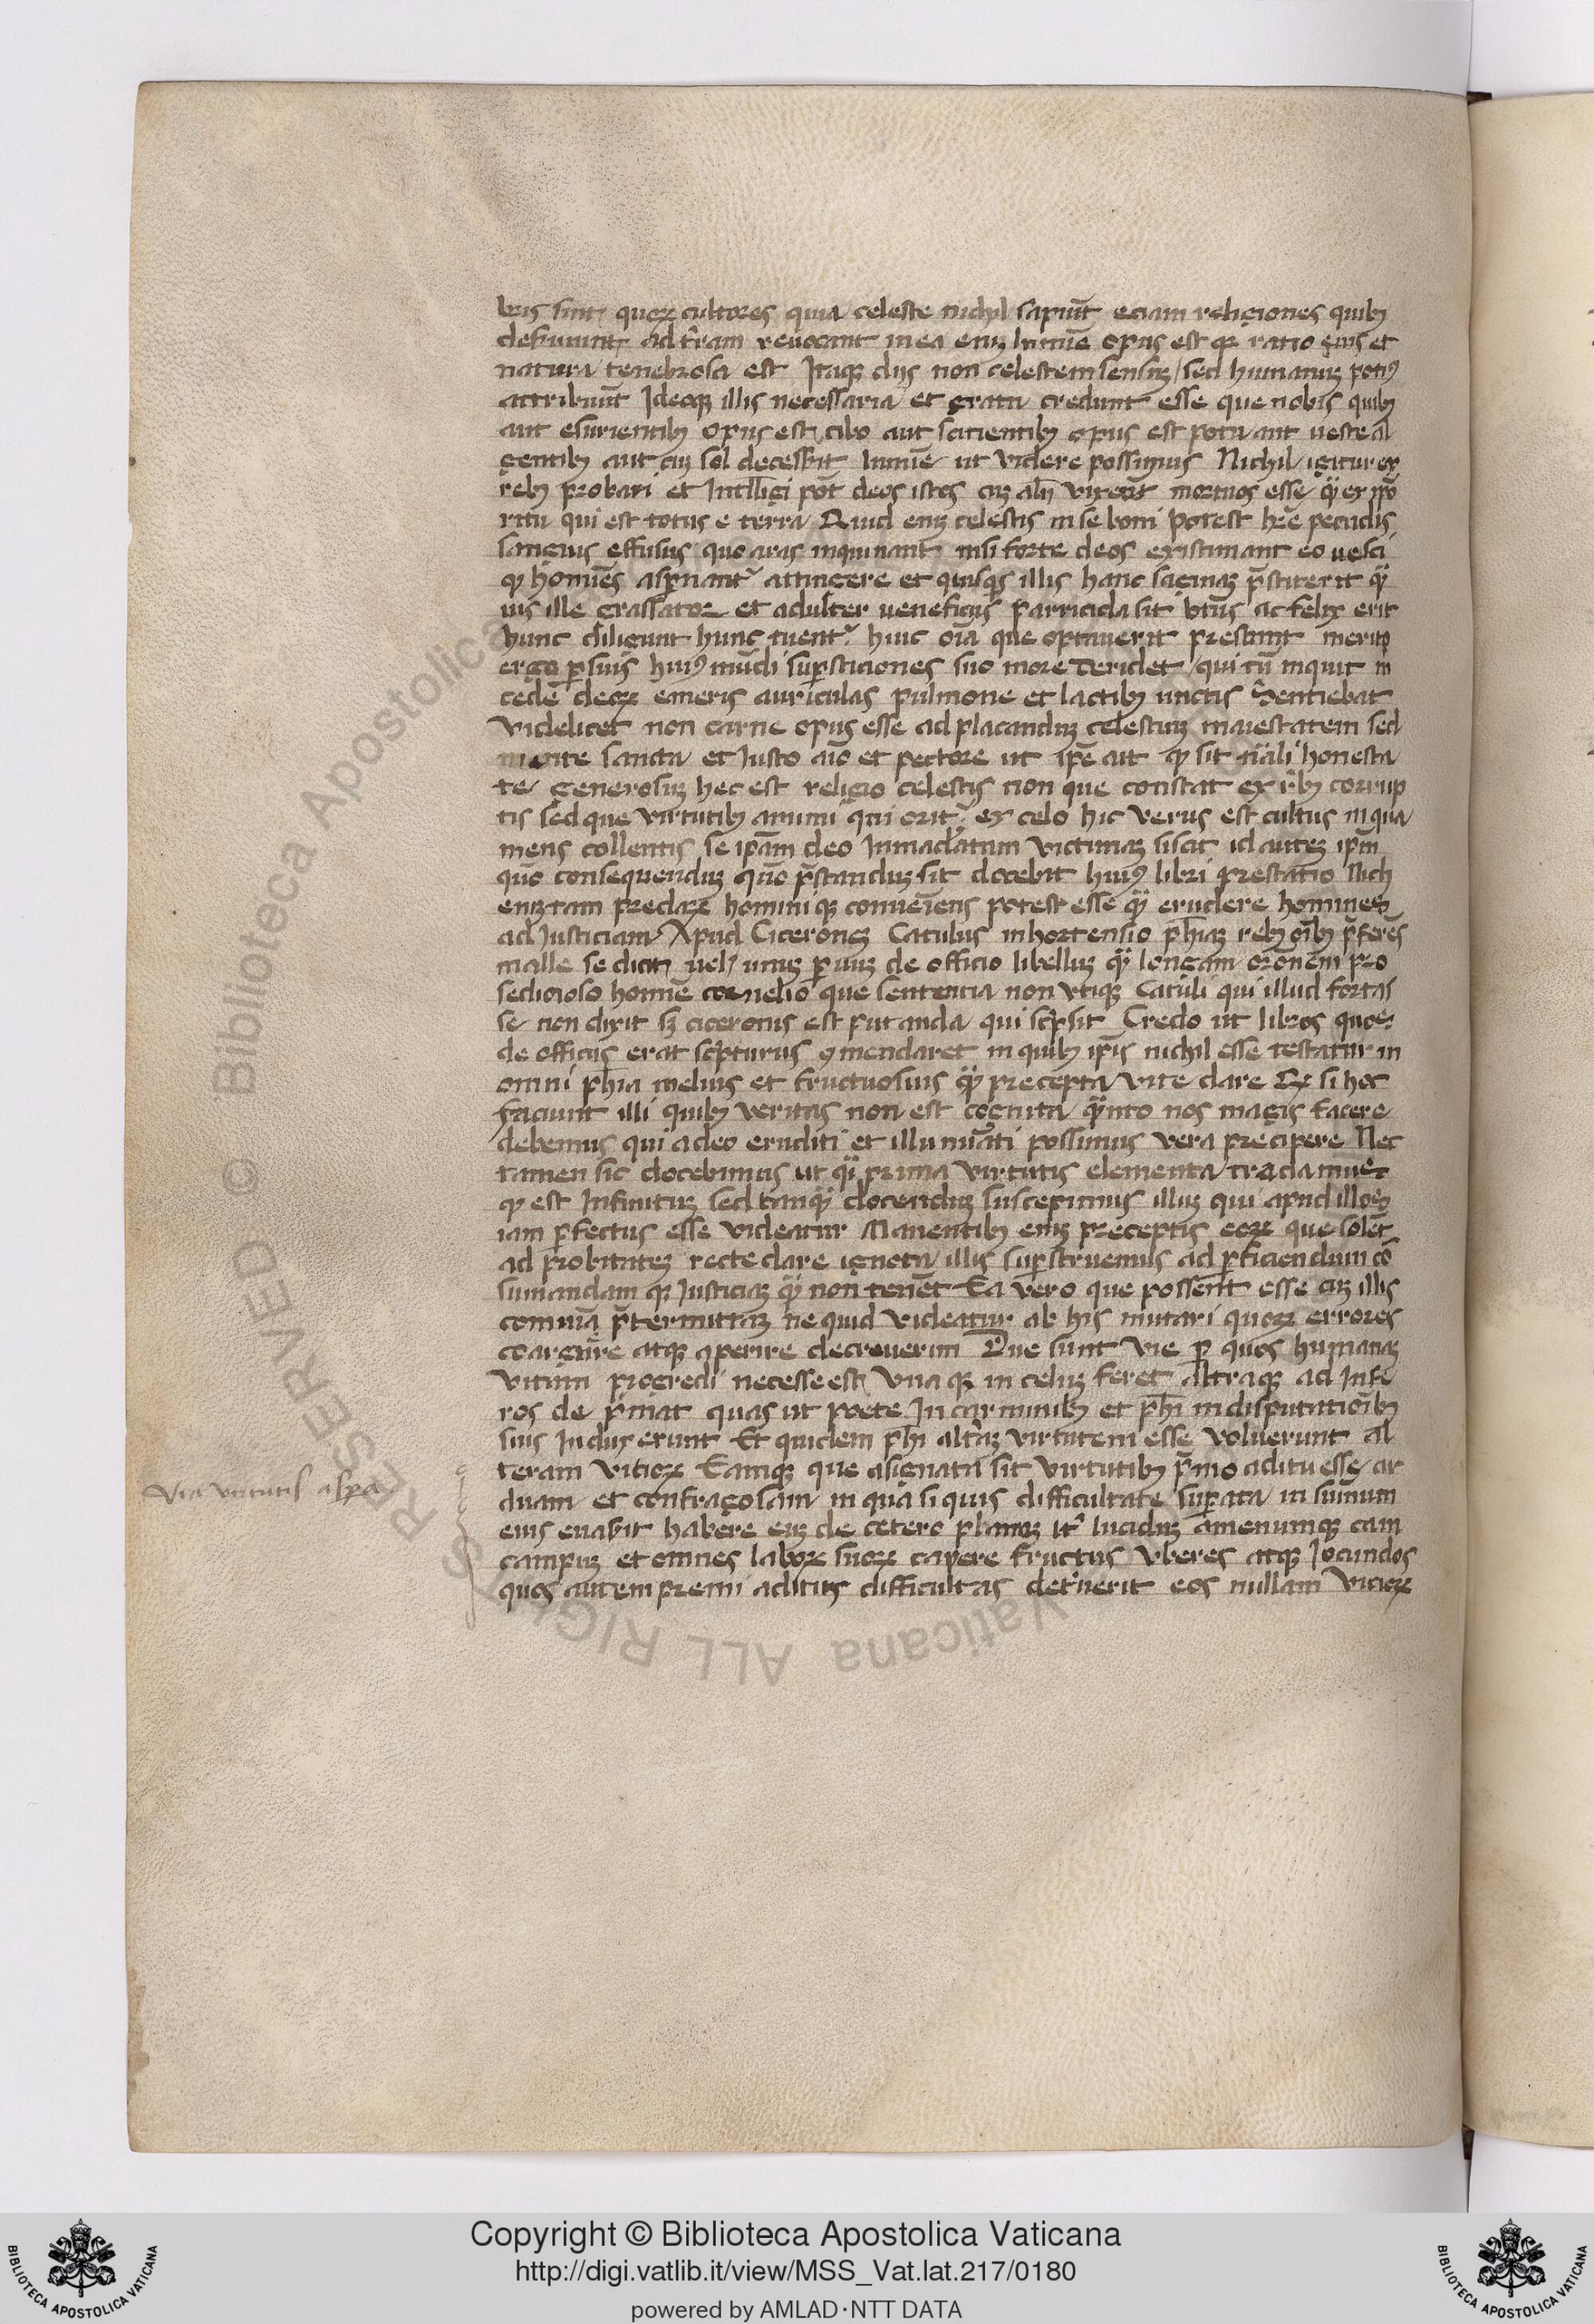 bris sint quoꝝ cultores quia celeste nichil sapiūt eciam religiones quibꝫ
deseruiunt ad t̄ram reuocant in ea enī lumīe opus est qꝛ ratio eius et
natura tenebrosa est Itaqꝫ dijs non celestem sensuꝫ / sed humanuꝫ potiꝰ
attribuūt Ideoqꝫ illis necessaria et grata credunt esse que nobis quibꝫ
aut esurientibꝫ opus est cibo aut scitientibꝫ opus est potu aut ueste al
gentibꝫ aut cuꝫ sol decesserit lumīe ut videre possimus Nichil igitur ex
rebꝫ probari et Intelligi pōt deos istos cuꝫ aliqñ vixerīt mortuos esse qꝫ̄ ex ipō
ritu qui est totus e terra Quid enī celestis in se boni potest hr̄e pecudis
sanguis effusus quo aras inquinant nisi forte deos existimant eo uesci
qd̓ homīes asp̲nant᷑ attingere et quisqs illis hanc saginaꝫ p̄stiterit qꝫ̄
uis ille grassator et adulter ueneficus parricida sit bt̄us ac felix erit
hunc diligunt hunc tuent᷑ huic oīa que optauerit prestant merito
ergo p̲suis huiꝰ mūdi sup̲sticiones suo more deridet / qui tū inquit m̄
cede deoꝝ emeris auriculas pulmone et lactibꝫ unctis Sentiebat
videlicet non carne opus esse ad placanduꝫ celestuꝫ maiestatem sed
mente sancta et Iusto aīo et pectore ut ipē ait qd̓ sit nāli honesta
te generosuꝫ hec est religio celestis non que constat ex rebꝫ corrup
tis sed que virtutibꝫ animi qui orit᷑ ex celo hic verus est cultus in qua
mens collentis se ipam deo Inmaclatam victimaꝫ sistit id auteꝫ ipm̄
quō consequenduꝫ quō p̄standuꝫ sit docebit huiꝰ libri prestatio Nich
enī tam preclaꝝ hominiqꝫ conueīens potest esse qꝫ̄ erudere homines
ad Iusticiam Apud Ciceroneꝫ Catulus in hortensio ph̄iaꝫ rebꝫ oībꝫ p̄ferēs
malle se dicit uel unuꝫ p̲uuꝫ de officio libelluꝫ qꝫ̄ longam orōnem pro
sedicioso homīe cornelio que sententia non vtiqꝫ Catuli qui illud fortas
se non dixit sꝫ ciceronis est putanda qui scp̄sit Credo ut libros quos
de officiis erat scp̄turus ꝯmendaret in quibꝫ ip̄is nichil esse testatur in
omni ph̄ia melius et fructuosius qꝫ̄ precepta vite dare Qd̓ si hoc
faciunt illi quibꝫ veritas non est cognita qꝫ̄nto nos magis facere
debemus qui a deo eruditi et illumināti possimus vera precipere Nec
tamen sic docebimus ut qi prima virtutis elementa tradamus
qd̓ est Infinituꝫ sed tanqꝫ̄ docenduꝫ suscepimus illuꝫ qui apud illos
iam p̲fectus esse videatur Manentibꝫ enī preceptis eoꝝ que solēt
ad probitateꝫ recte dare ignota illis sup̲struemus ad p̲ficiendum cō
sumandam qꝫ Iusticiaꝫ qꝫ̄ non tenēt Ea vero que possent esse cuꝫ illis
comunia p̄termittaꝫ ne quid videatur ab his mutari quoꝝ errores
coarguere atqꝫ aperire decreuerim Due sunt vie p̲ quos humanaꝫ
vitam progredi necesse est Una qꝫ in celuꝫ feret altraqꝫ ad Infe
ros de p̲mat quas ut poete In carminibꝫ et ph̄i in disputatiōibꝫ
suis Induxerunt Et quidem ph̄i alteraꝫ virtutem esse voluerunt al
teram vitioꝝ Eamqꝫ que asignata sit virtutibꝫ p̄mo aditu esse ar
duam et confragosam in qua si quis difficultate sup̲ata in sūmum
eius euaserit habere euꝫ de cetero planuꝫ it᷑ lucidum amenumqꝫ cam
campuꝫ et omnes laboꝝ suoꝝ capere fructus Vberes atqꝫ Iocundos
quos autem premi aditus difficultas deterruerit eos nullam vicioꝝ
Via virtutis asp̲a
Copyright © Biblioteca Apostolica Vaticana
http://digi.vatlib.it/view/MSS_Vat.lat.217/0180
powered by AMLAD·NTT DATA
BIBLIOTECA APOSTOLICA VATICANA
BIBLIOTECA APOSTOLICA VATICANA